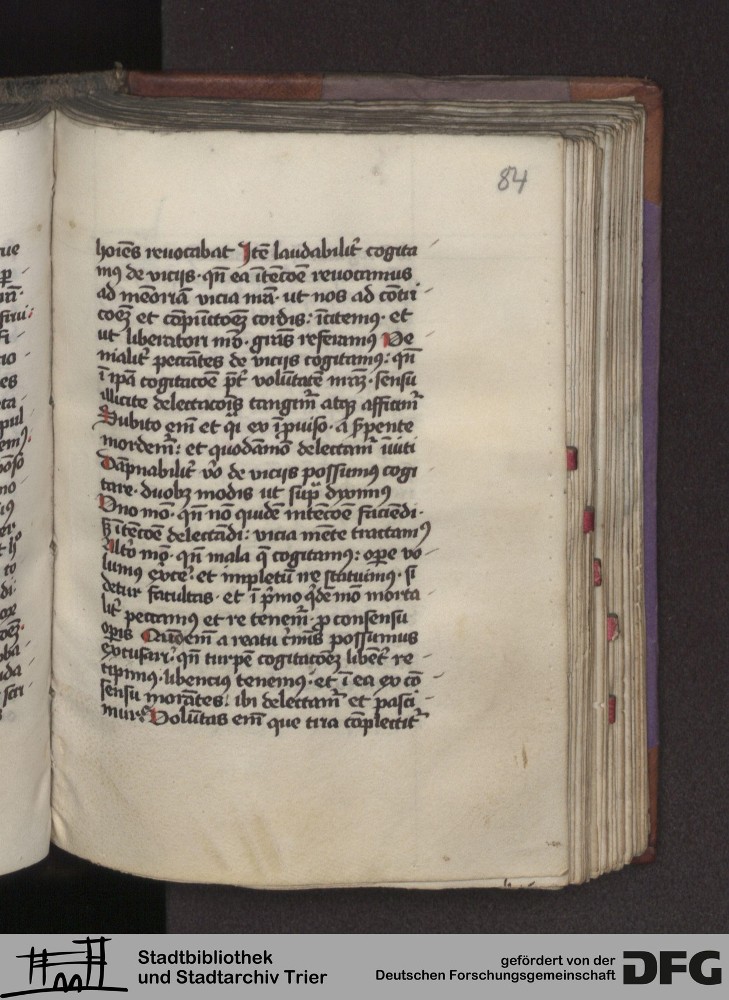 84
hoīes reuocabat Itē laudabilit᷑ cogita
mꝰ de vicijs · qn̄ ea ītēcōe reuocamus
ad mēoriā vicia nr̄a · ut nos ad cōtri
coēꝫ et cōpūctoēꝫ cordis : īcitemꝰ · et
ut liberatori nr̄o · grās referamꝰ Ve
nialit᷑ peccātes de vicijs cogitamꝰ : qn̄
ī ip̄a cogitacōe p̄t᷑ volūtatē nr̄aꝫ · sensu
illicite delectacōis tangim᷑ atqꝫ afficim᷑
Subito em̄ et qi ex īprouiso · a s̄pente
mordem᷑ : et quodāmō delectam᷑ īuiti
Dāpnabilit᷑ v̄o de vicijs possumꝰ cogi
tare · duobꝫ modis ut sup᷑ dixımꝰ
Uno mō · qn̄ nō quidē intēcōe faciēdi ·
sꝫ ītēcōe delectādi : vicia mēte tractamꝰ
Alt᷑o mō · qn̄ mala q̄ cogitamꝰ : oꝑe vo
lumꝰ exce᷑ · et impletū ire statuimꝰ · si
detur facultas · et ī pͥmo qͥdē mō morta
lit᷑ peccamꝰ et re tenem᷑ · ꝓ consensu
oꝑis Quidem a reatu cͥmīs possumus
excusari · qn̄ turpē cogitacōeꝫ libent᷑ re
cipimꝰ · libencius tenemꝰ · et ī ea ex cō
sensu morātes : ibi delectam᷑ et pasci
mur Volūtas em̄ que tria cōplectit᷑
Stadtbibliothek
und Stadtarchiv Trier
gefördert von der
Deutschen Forschungsgemeinschaft
DFG